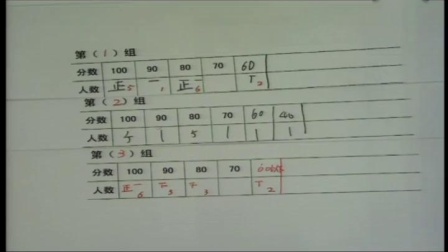 第（1）组
分数 100 90 80 70 60
人数 正5 一1 正一6 T2
第（2）组
分数 100 90 80 70 60 40
人数 5 1 5 1 1 1
第（3）组
分数 100 90 80 70
人数 正一6 3 3 T2